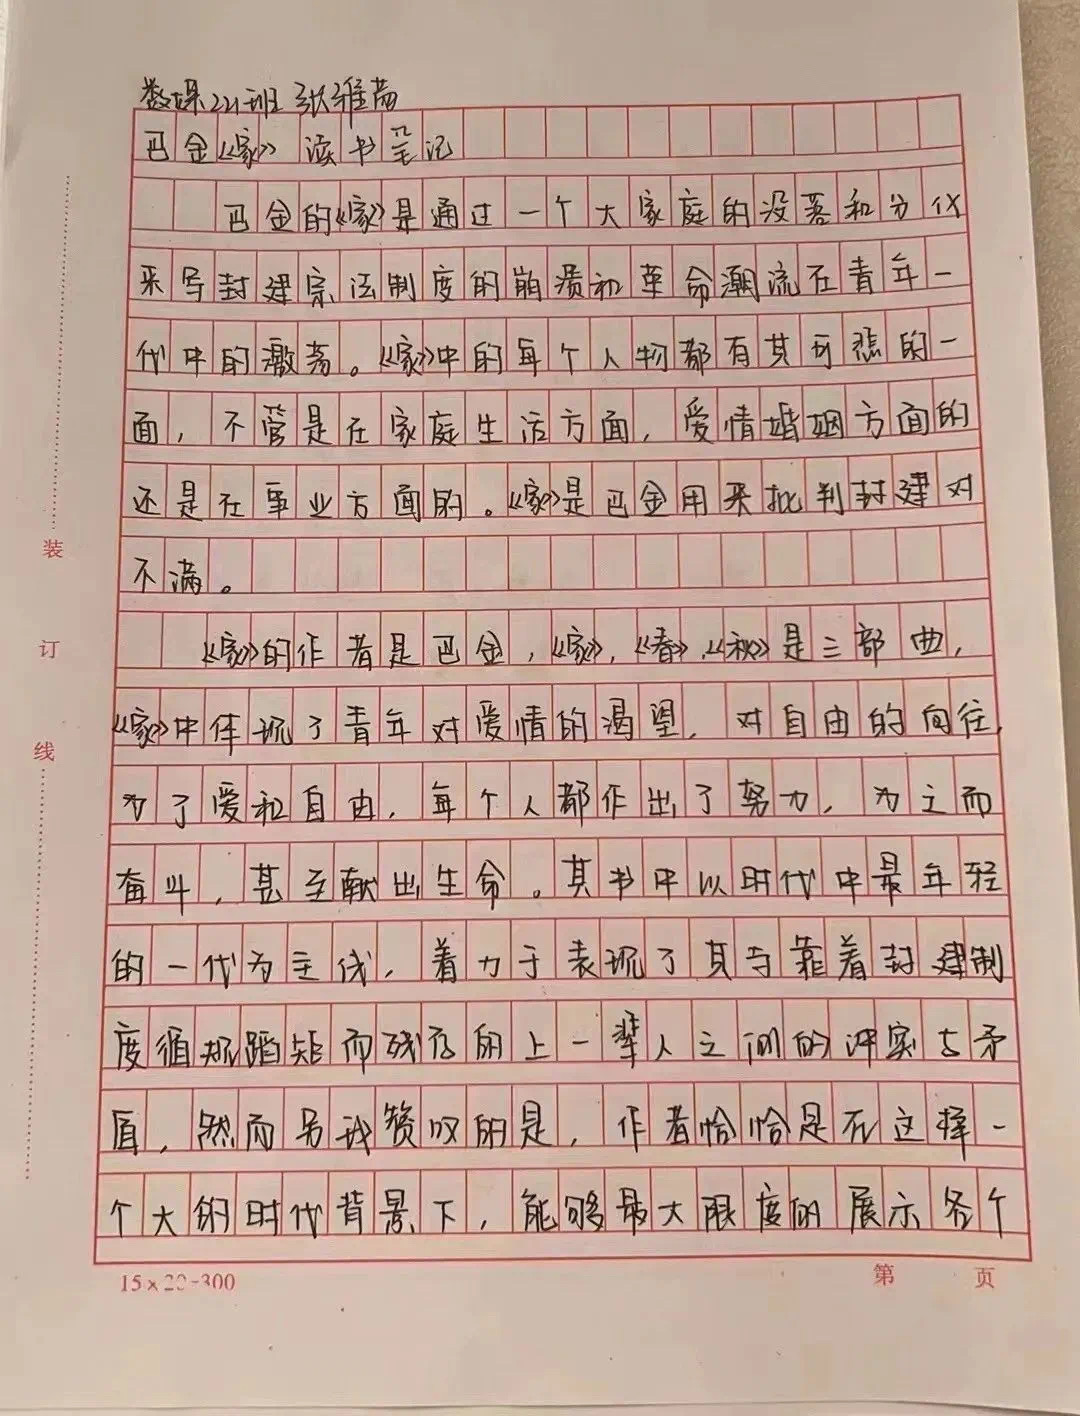 数媒221班 张雅茜
巴金《家》读书笔记
巴金的《家》是通过一个大家庭的没落和分化
来写封建宗法制度的崩溃和革命潮流在青年一
代中的激荡。《家》中的每个人物都有其可悲的一
面，不管是在家庭生活方面，爱情婚姻方面的
还是在事业方面的。《家》是巴金用来批判封建对
不满。
《家》的作者是巴金，《家》，《春》，《秋》是三部曲，
《家》中体现了青年对爱情的渴望，对自由的向往，
为了爱和自由，每个人都作出了努力，为之而
奋斗，甚至献出生命。其书中以时代中最年轻
的一代为主线，着力于表现了其与靠着封建制
度循规蹈矩而残存的上一辈人之间的冲突与矛
盾，然而另我赞叹的是，作者恰恰是在这择一
个大的时代背景下，能够最大限度的展示各个
装
订
线
15×20=300
第 页